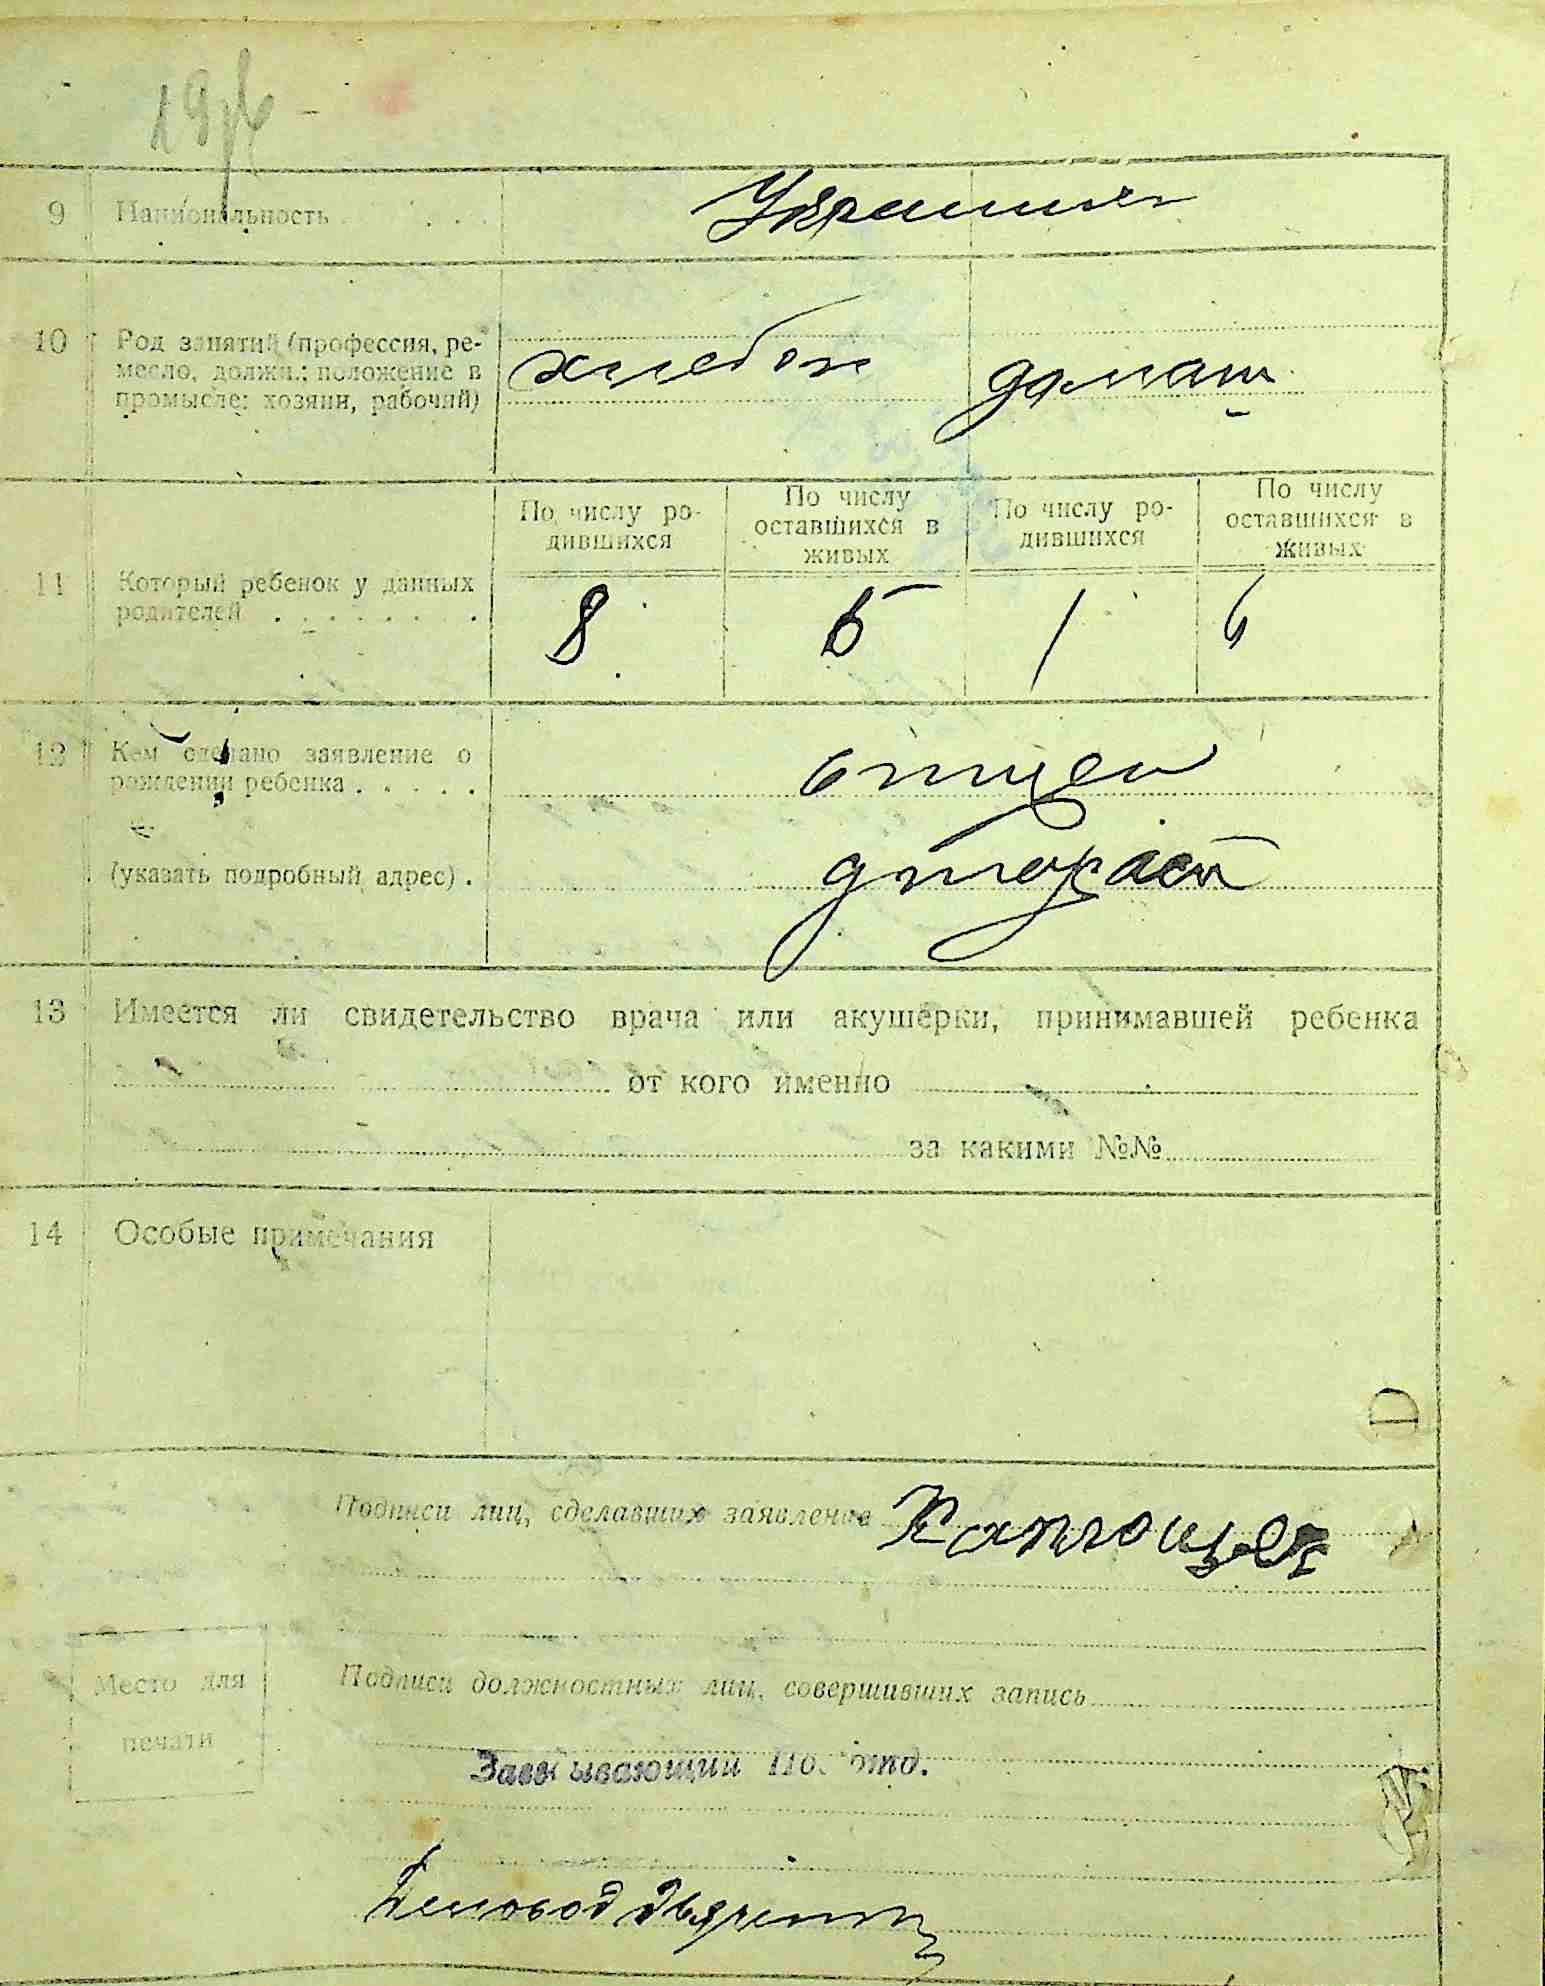 9 Национальность . . . .
Украинцы
10 Род занятий (профессия, ре-
месло, должн.: положение в
промысле: хозяин, рабочий)
хлебоп домаш
По числу ро-
дившихся
По числу
оставшихся в
живых
По числу ро-
дившихся
По числу
оставшихся в
живых
11 Который ребенок у данных
родителей . . . . . . . .
8 5 1
12 Кем сделано заявление о
рождении ребенка . . . . .
отцем
(указать подробный адрес) .
13 Имеется ли свидетельство врача или акушерки, принимавшей ребенка
от кого именно
за какими №№
14 Особые примечания
Подписи лиц, сделавших заявление
Место для
печати
Подписи должностных лиц, совершивших запись
Заведывающий отд.
Деловод